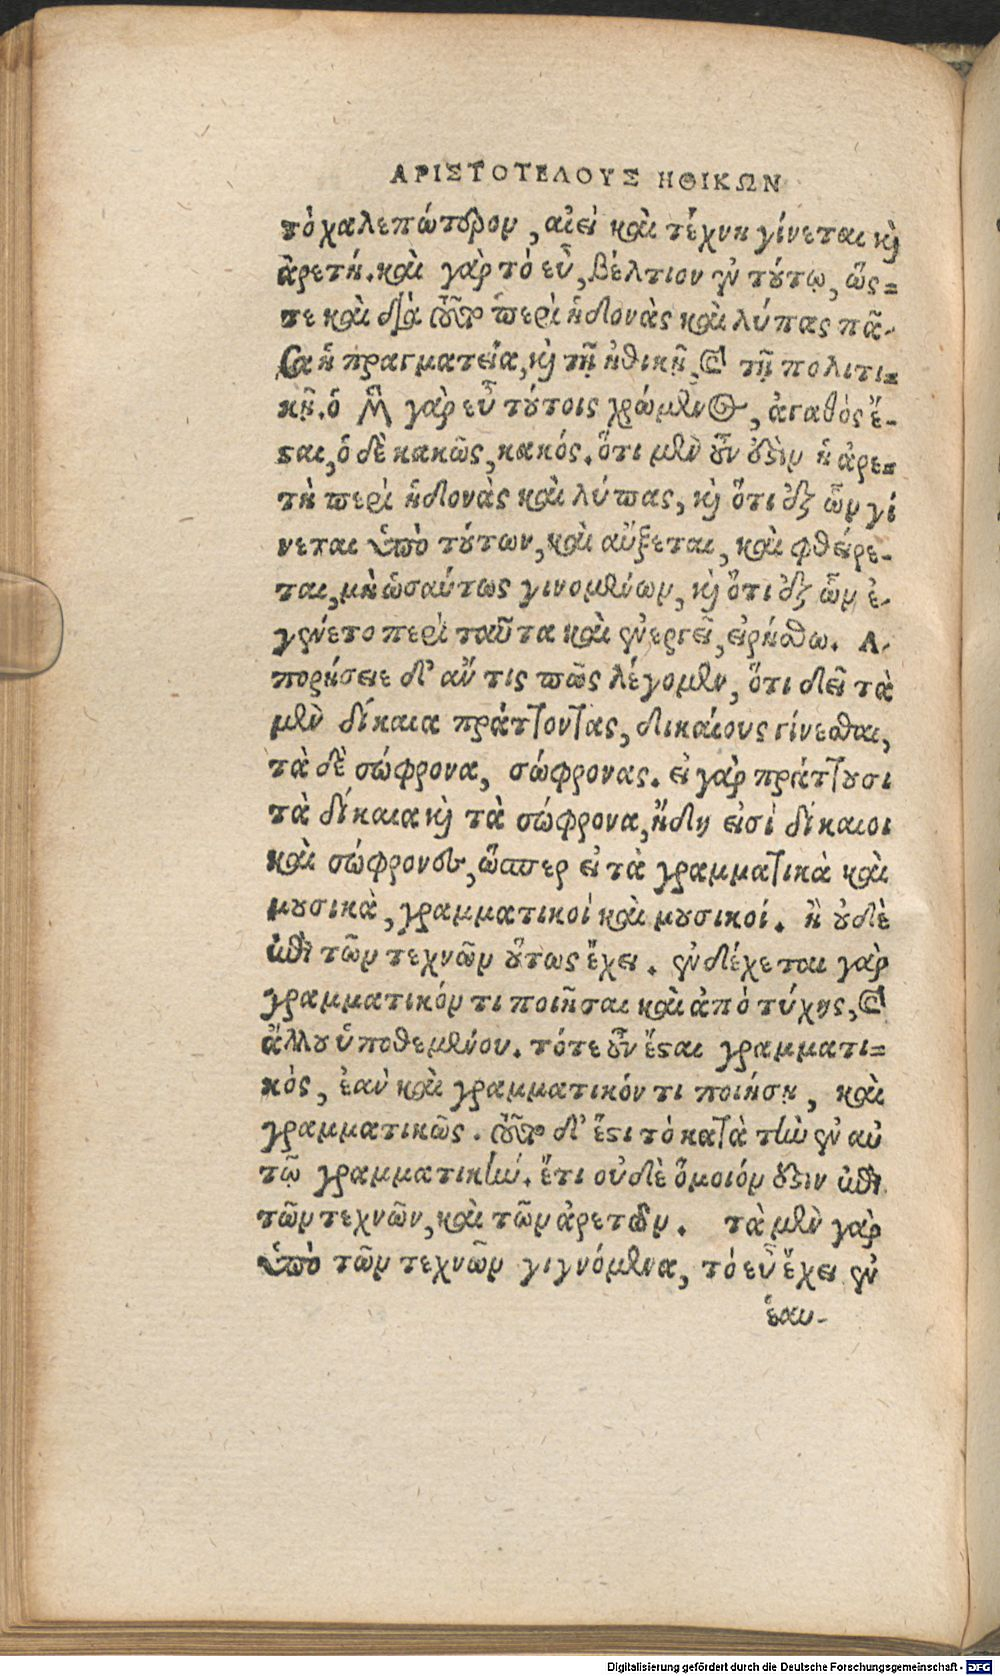 ΑΡΙΣΤΟΤΕΛΟΥΣ ΗΘΙΚΩΝ
τὸ χαλεπώτερον, αἰεὶ καὶ τέχνη γίνεται καὶ
ἀρετή. καὶ γὰρ τὸ εὖ, βέλτιον ἐν τούτῳ, ὥς=
τε καὶ διὰ τοῦτο περὶ ἡδονὰς καὶ λύπας πᾶ-
σα ἡ πραγματεία, καὶ τῇ ἠθικῇ, καὶ τῇ πολιτι=
κῇ. ὁ μὲν γὰρ εὖ τούτοις χρώμενος, ἀγαθὸς ἔ-
σται, ὁ δὲ κακῶς, κακός. ὅτι μὲν οὖν ἐστὶν ἡ ἀρε=
τὴ περὶ ἡδονὰς καὶ λύπας, καὶ ὅτι ἐξ ὧν γί
νεται ὑπὸ τούτων, καὶ αὔξεται, καὶ φθείρε-
ται, μὴ ὡσαύτως γινομένων, καὶ ὅτι ἐξ ὧν ἐ-
γένετο περὶ ταῦτα καὶ ἐνεργεῖ, εἰρήσθω. Α-
πορήσειε δ' ἄν τις πῶς λέγομεν, ὅτι δεῖ τὰ
μὲν δίκαια πράττοντας, δικαίους γίνεσθαι,
τὰ δὲ σώφρονα, σώφρονας. εἰ γὰρ πράττουσι
τὰ δίκαια καὶ τὰ σώφρονα, ἤδη εἰσὶ δίκαιοι
καὶ σώφρονες, ὥσπερ εἰ τὰ γραμματικὰ καὶ
μουσικὰ, γραμματικοὶ καὶ μουσικοί. ἢ οὐδὲ
ἐπὶ τῶν τεχνῶν οὕτως ἔχει. ἐνδέχεται γὰρ
γραμματικόν τι ποιῆσαι καὶ ἀπὸ τύχης, καὶ
ἄλλου ὑποθεμένου. τότε οὖν ἔσται γραμματι=
κὸς, ἐὰν καὶ γραμματικόν τι ποιήσῃ, καὶ
γραμματικῶς. τοῦτο δ' ἔστι τὸ κατὰ τὴν ἐν αὑ
τῷ γραμματικήν. ἔτι οὐδὲ ὅμοιόν ἐστιν ἐπὶ
τῶν τεχνῶν, καὶ τῶν ἀρετῶν. τὰ μὲν γὰρ
ὑπὸ τῶν τεχνῶν γιγνόμενα, τὸ εὖ ἔχει ἐν
ἑαυ-
Digitalisierung gefördert durch die Deutsche Forschungsgemeinschaft - DFG